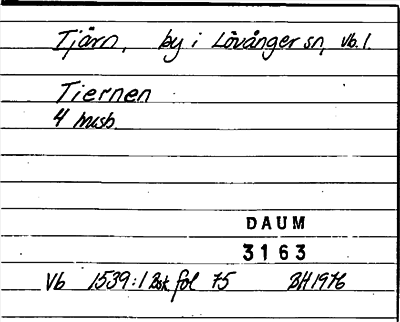 Tjärn, by i Lövånger sn, Vb. l.
Tiernen
4 husb.
DAUM
3163
Vb 1539:1 Bsk fol 75 BH 1976